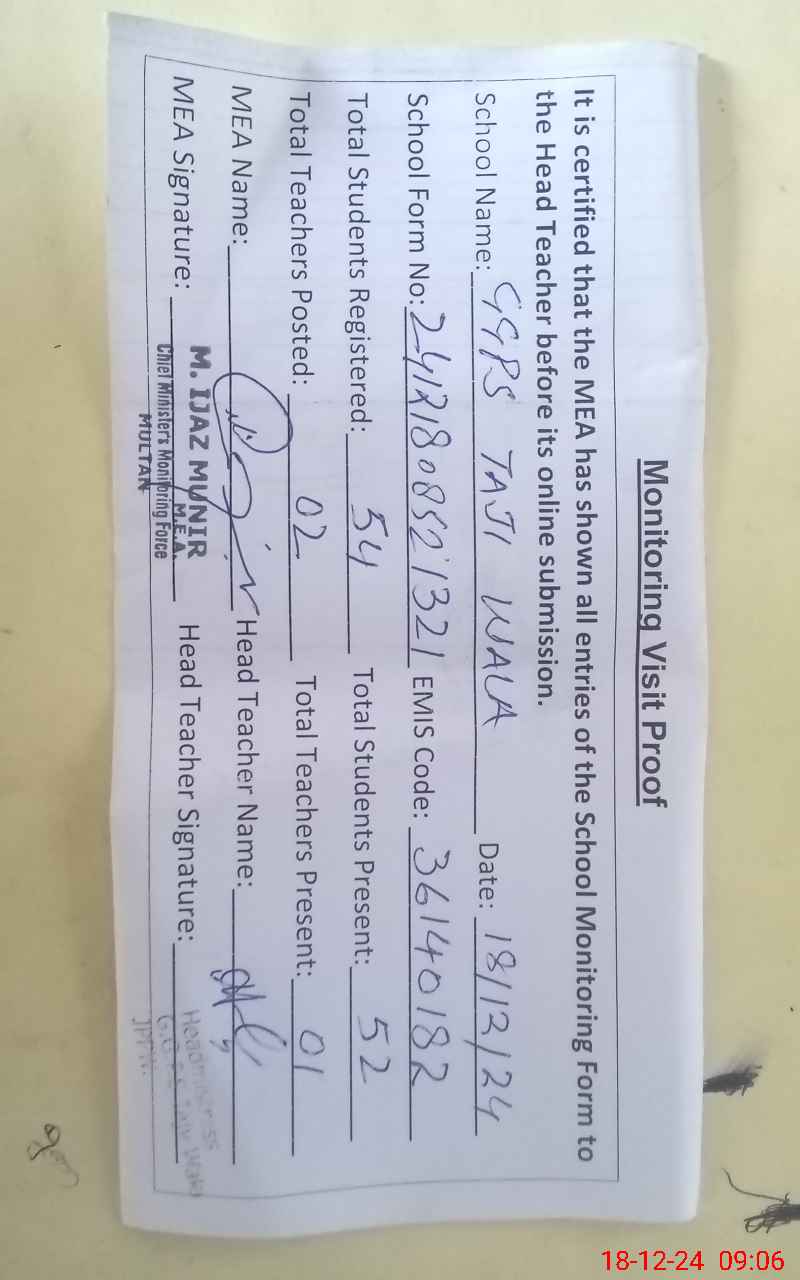 Monitoring Visit Proof
It is certified that the MEA has shown all entries of the School Monitoring Form to
the Head Teacher before its online submission.
School Name: GGPS TAJI WALA Date: 18/12/24
School Form No: 24121808521321 EMIS Code: 36140182
Total Students Registered: 54 Total Students Present: 52
Total Teachers Posted: 02 Total Teachers Present: 01
MEA Name: Head Teacher Name:
MEA Signature: Head Teacher Signature:
M. IJAZ MUNIR
M.E.A.
Chief Minister's Monitoring Force
MULTAN
Headmistress
18-12-24 09:06